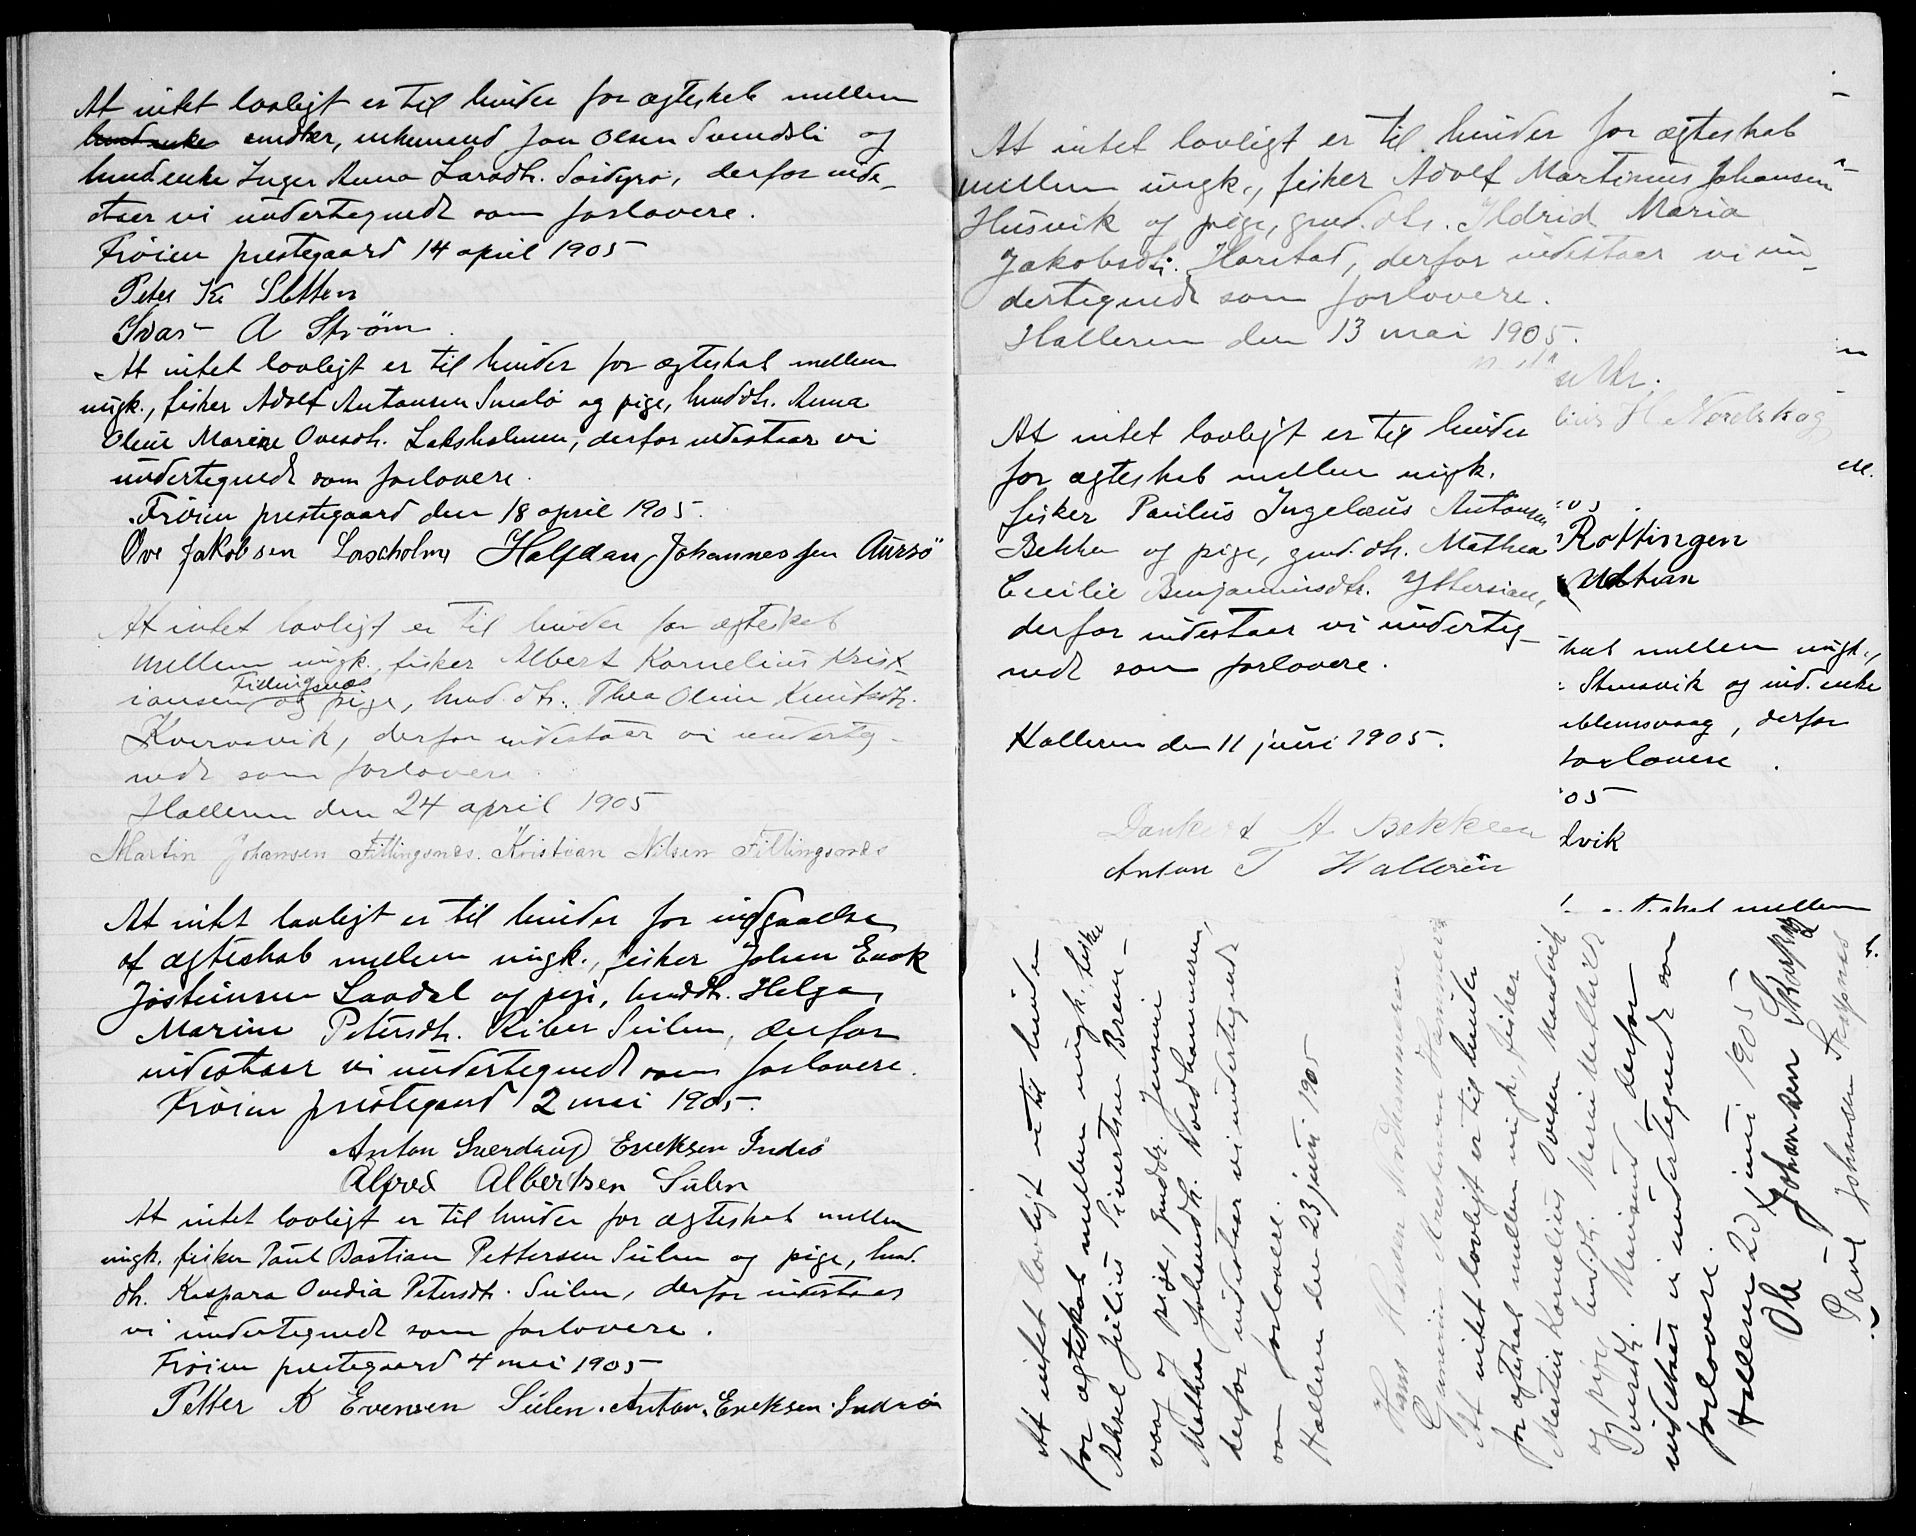 At intet lovligt er til hinder for ægteskab mellem
enker, enkemand Jon Olsen Svendsli og
husd enke Inger Anna Larsdtr. , derfor inde-
staar vi undertegnede som forlovere.
Frøien prestegaard 14 april 1905
Peter Kr Sletten
Ivar A Strøm.
At intet lovligt er til hinder for ægteskab mellem
ungk., fisker Adolf Antonsen og pige, husdtr. Anna
Oline Marine Ovesdtr. Laksholmen, derfor indestaar vi
undertegnede som forlovere.
Frøien prestegaard den 18 april 1905.
Ove Jakobsen Laxholme Halfdan Johannessen Aursø
At intet lovligt er til hinder for ægteskab
mellem ungk., fisker Albert Kornelius Krist
Fillingsnæs
iansen og pige, husd. dtr. Thea Oline Knutsdtr.
Kvervavik, derfor indestaar vi underteg-
nede som forlovere.
Halleren den 24 april 1905
Martin Johansen Fillingsnes. Kristian Nilsen Fillingsnes
At intet lovligt er til hinder for indgaaelse
af ægteskab mellem ungk., fisker Johan Enok
Jøsteinsen Laadal og pige, husdtr. Helga
Marine Petersdtr. Riber Sulen, derfor
indestaar vi undertegnede som forlovere.
Frøien prestegaard 2 mai 1905.
Anton Sverdrup Ericksen Indrø
Alfred Albertsen Sulen
At intet lovligt er til hinder for ægteskab mellem
ungk. fisker Paul Bastian Pettersen Sulen og pige, husd.
dtr. Kaspara Ovedia Petersdtr. Sulen, derfor indestaar
vi undertegnede som forlovere.
Frøien prestegaard 4 mai 1905
Petter K Evensen Sulen. Anton. Ericksen. Indrø
At intet lovligt er til hinder for ægteskab
mellem ungk., fisker Adolf Martinus Johansen
Husvik og pige, gmd. dtr. Ildrid Maria
Jakobsdtr. Harstad, derfor indestaar vi un-
dertegnede som forlovere.
Halleren den 13 mai 1905.
H. Nordskog
At intet lovligt er til hinder
for ægteskab mellem ungk.
fisker Paulus Ingelæus Antonsen
Bekken og pige, gmd. dtr. Mathea
Cecilie Benjaminsdtr. Yttersian,
derfor indestaar vi underteg-
nede som forlovere.
Halleren den 11 juni 1905.
Dankert A Bekken
Anton T Halleren
05.
Rottingen
Uttian
kab mellem ungk.,
Stensvik og ind. enke
blemsvaag, derfor
forlovere.
05
dvik
skab mellem
At intet lovligt er til hinder
for ægteskab mellem ungk. fisker
Aksel Julius Sivertsen Brem-
vaag og pige gmddtr. Jensine
Mathea Johansdtr. Nordhammeren,
derfor indestaar vi undertegnede
som forlovere.
Halleren den 23 juni 1905
Hans Hansen Nordhammeren
Hammervik
At intet lovligt er til hinder
for ægteskab mellem ungk., fisker
Martin Kornelius Ovesen
og pige, husdtr. Marie
Iversdtr. , derfor
indestaar vi undertegnede som
forlovere.
Halleren 23 juni 1905
Ole Johansen Skarpnes
Paul Johansen